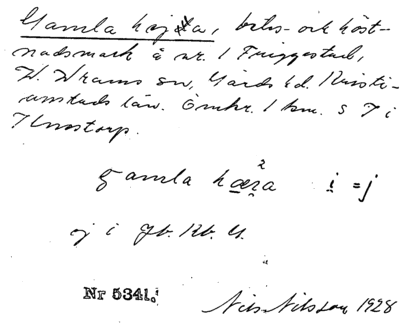 Gamla hajxa, betes- och höst-
nadsmark å nr. 1 Friggestad,
V. Vrams sn, Gärds hd. Kristi-
anstads län. Omkr. 1 km. S J i
gamla hæʒa i = j
ej i Jb. Rb. G.
Nr 5341.
Nils Nilsson 1928